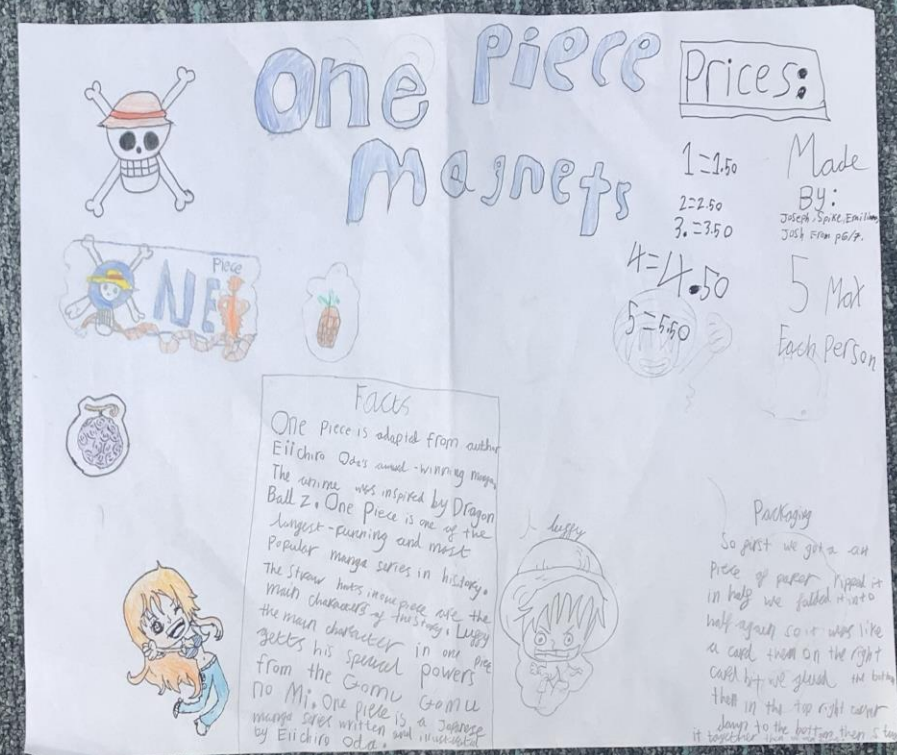 One Piece
Magnets
Prices:
1=1.50
2=2.50
3.=3.50
4=4.50
5=5.50
Made
By:
Joseph, Spike, Emilian,
Josh From p6/7.
5 Max
Each Person
Piece
NE
Facts
One Piece is adapted from author
Eiichiro Oda's award-winning manga.
The anime was inspired by Dragon
Ball Z. One Piece is one of the
longest-running and most
Popular manga series in history.
The Straw hats in one piece are the
main characters of the story. Luffy
the main character in one piece
getts his special powers
from the Gomu Gomu
no Mi. One piece is a Japanese
manga series written and illustrated
by Eiichiro Oda.
Luffy
Packaging
So first we got a a4
Piece of paper ripped it
in half we folded it into
half again so it was like
a card then on the right
card bit we glued the bottom
then in the top right corner
down to the bottom then
it together